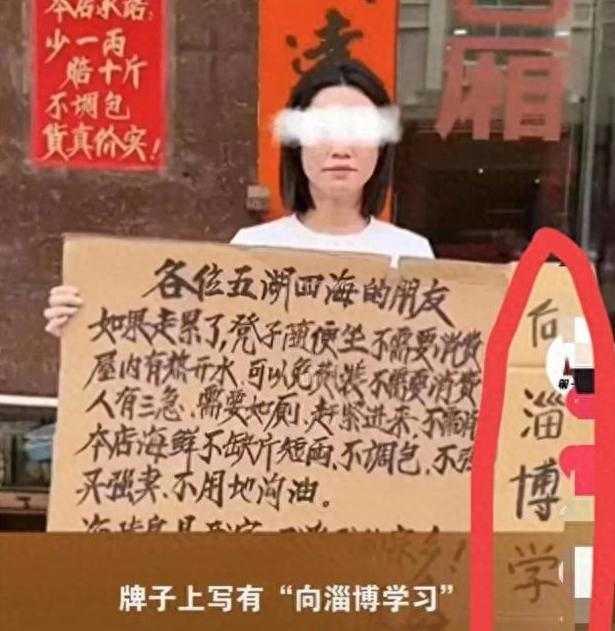 本店承诺:
少一两
赔十斤
不调包
货真价实!
清
厢
各位五湖四海的朋友
如果走累了,凳子随便坐不需要消费
屋内有热开水,可以免费装不需要消费
人有三急,需要如厕,赶紧进来,不需消
本店海鲜不缺斤短两,不调包,不强
买强卖,不用地沟油。
向淄博学
牌子上写有“向淄博学习”